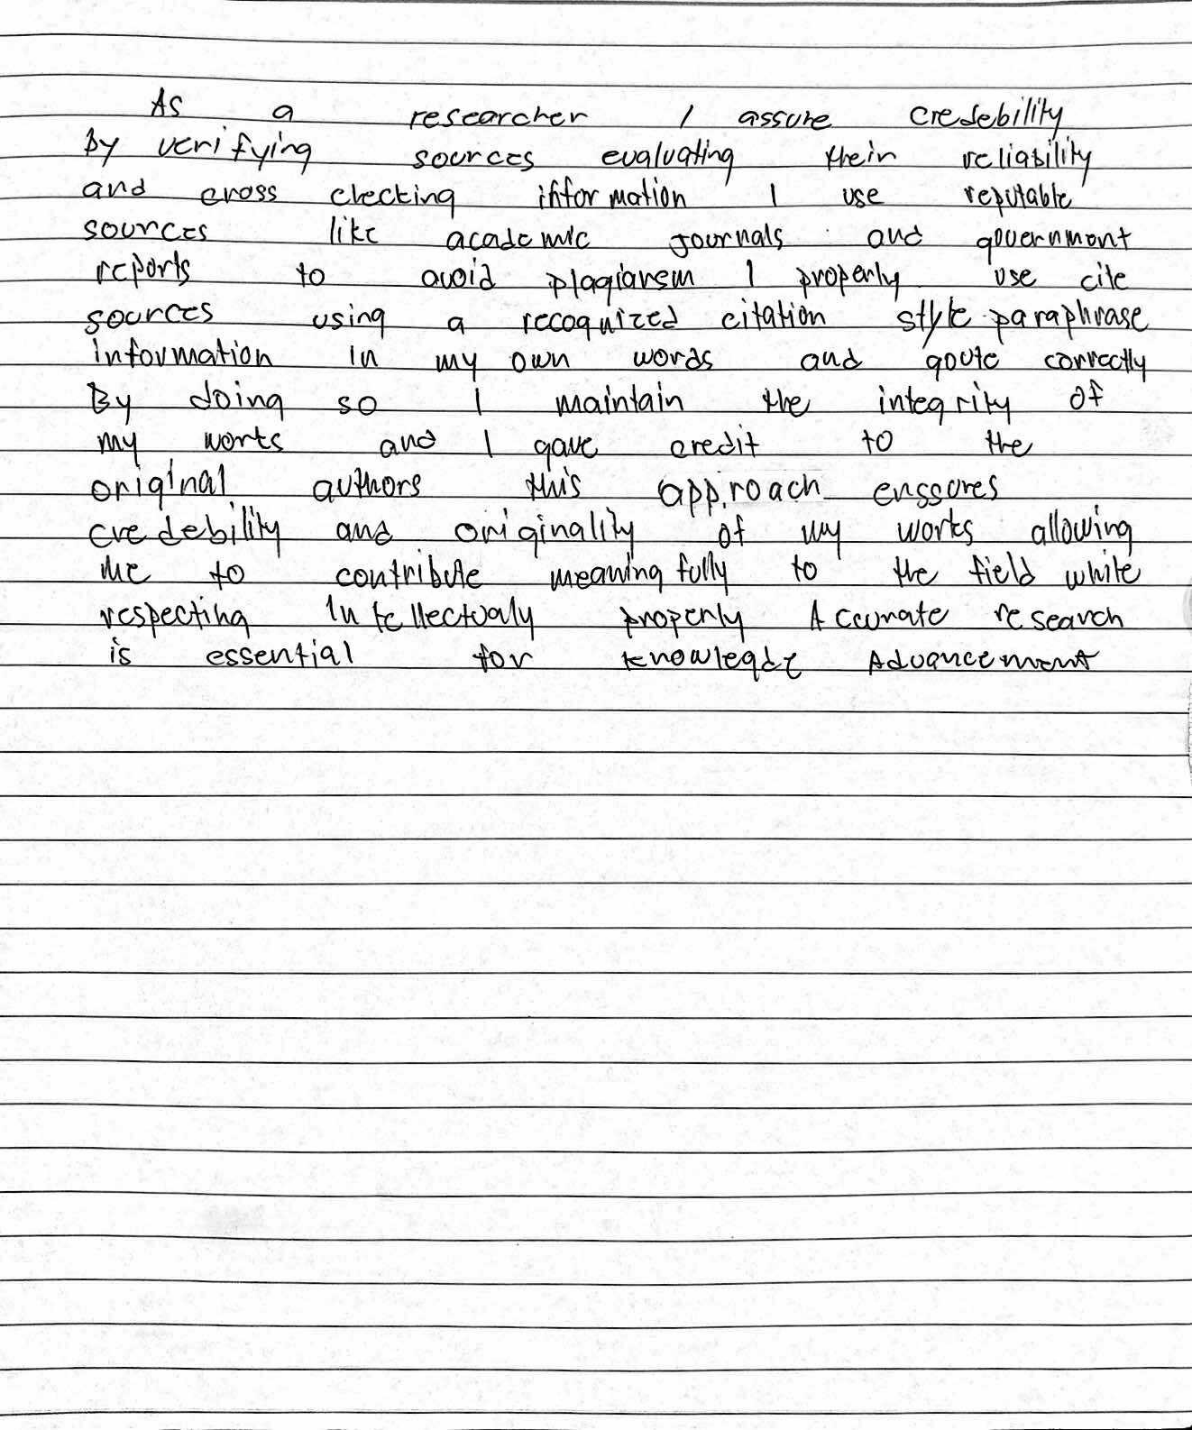 As a researcher I assure credebility
By verifying sources evaluating their reliability
and cross checking information I use reputable
sources like academic journals and government
reports to avoid plagiarsm I properly use cite
sources using a recognized citation style paraphrase
information in my own words and qoute correctly
By doing so I maintain the integrity of
my works and I gave credit to the
original authors this approach enssores
credebility and originality of my works allowing
me to contribute meaningfully to the field white
respecting Intellectualy properly Accurate research
is essential for knowlegde Advancement